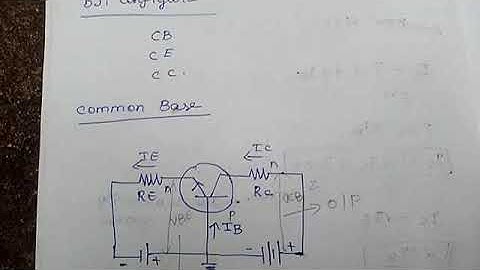 BJT
CB
CE
CC.
Common Base
IE
IC
n
n
RE
RC
VBE
P
IB
VCB
O/P
- +
- +